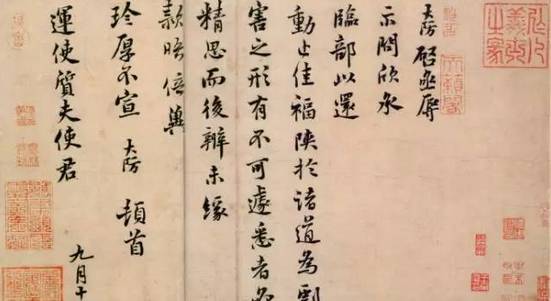 大防啓亟辱
示問欣承
臨部以還
動止佳福陝於諸道為劇
害之形有不可遽悉者必
精思而後辦未緣
款晤倍冀
珍厚不宣 大防 頓首
運使質夫使君
九月十